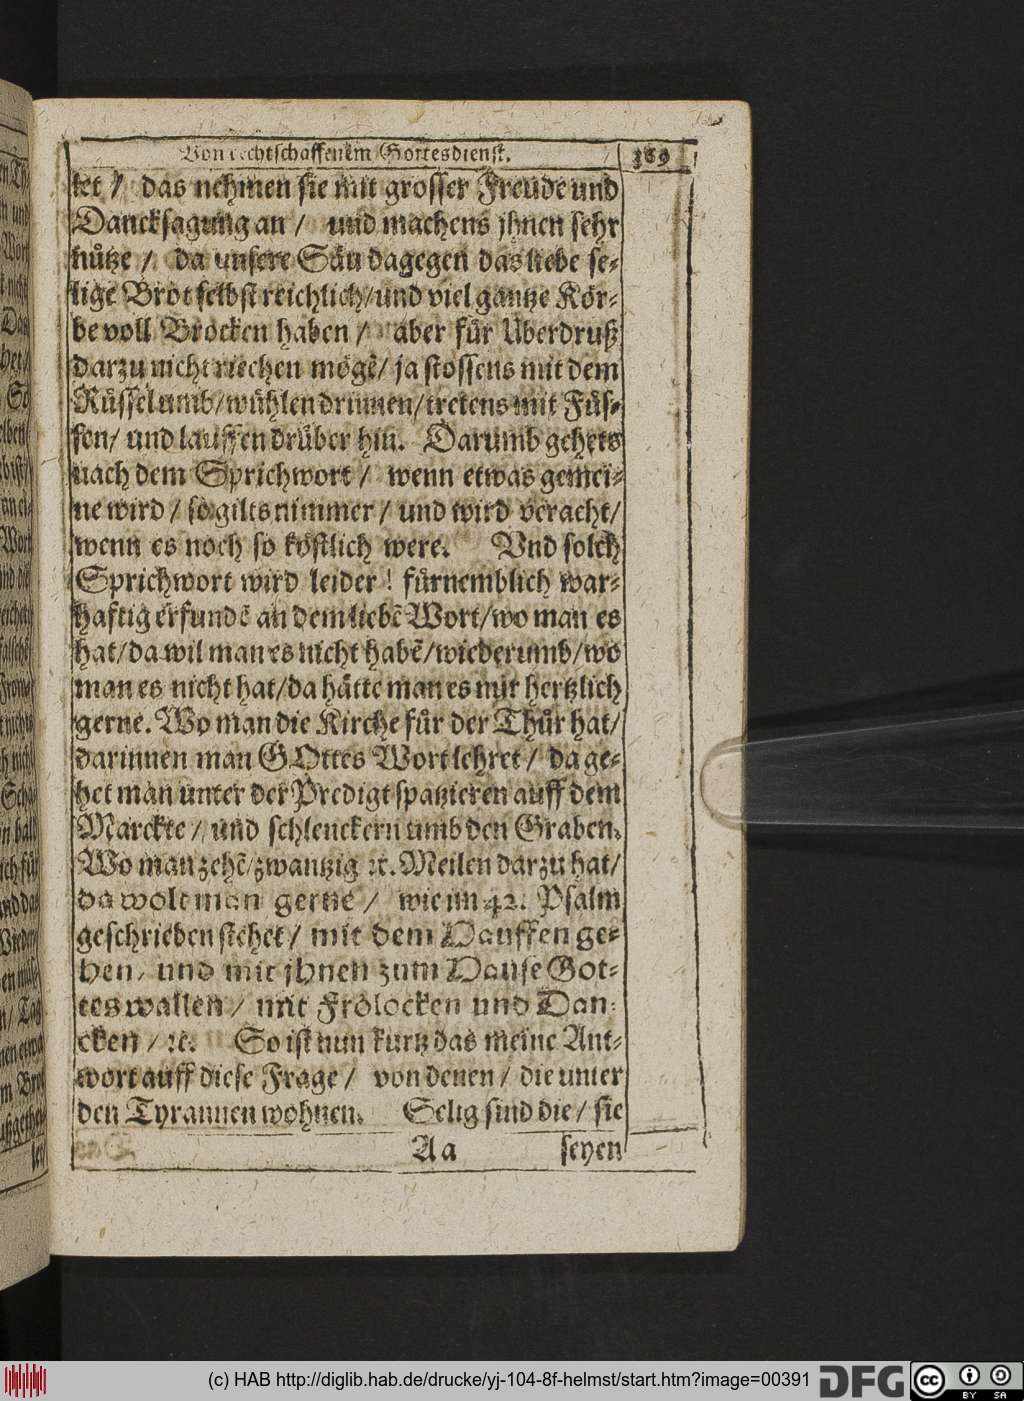 Von rechtschaffenem Gottesdienst. 369
tet / das nehmen sie mit grosser Freude und
Dancksagung an / und machens jhnen sehr
nuͤtze / da unsere Saͤu dagegen das liebe se-
lige Brot selbst reichlich/und viel gantze Koͤr-
be voll Brocken haben / aber fuͤr Uberdruß
darzu nicht riechen moͤgẽ/ ja stossens mit dem
Ruͤssel umb/wuͤhlen drinnen/tretens mit Fuͤs-
sen/ und lauffen druͤber hin. Darumb gehets
nach dem Sprichwort / wenn etwas gemei-
ne wird / so gilts nimmer / und wird veracht/
wenn es noch so koͤstlich were. Vnd solch
Sprichwort wird leider ! fuͤrnemblich war-
haftig erfundẽ an dem liebẽ Wort/wo man es
hat/da wil man es nicht habẽ/wiederumb/wo
man es nicht hat/da haͤtte man es mit hertzlich
gerne. Wo man die Kirche fuͤr der Thuͤr hat/
darinnen man GOttes Wort lehret / da ge-
het man unter der Predigt spatzieren auff dem
Marckte / und schlenckern umb den Graben.
Wo man zehẽ/zwantzig ꝛc. Meilen darzu hat/
da wolt man gerne / wie im 42. Psalm
geschrieben stehet / mit dem Hauffen ge-
hen/ und mit jhnen zum Hause Got-
tes wallen / mit Frolocken und Dan-
cken / ꝛc. So ist nun kurtz das meine Ant-
wort auff diese Frage / von denen / die unter
den Tyrannen wohnen. Selig sind die / sie
Aa seyen
(c) HAB http://diglib.hab.de/drucke/yj-104-8f-helmst/start.htm?image=00391 DFG cc BY SA